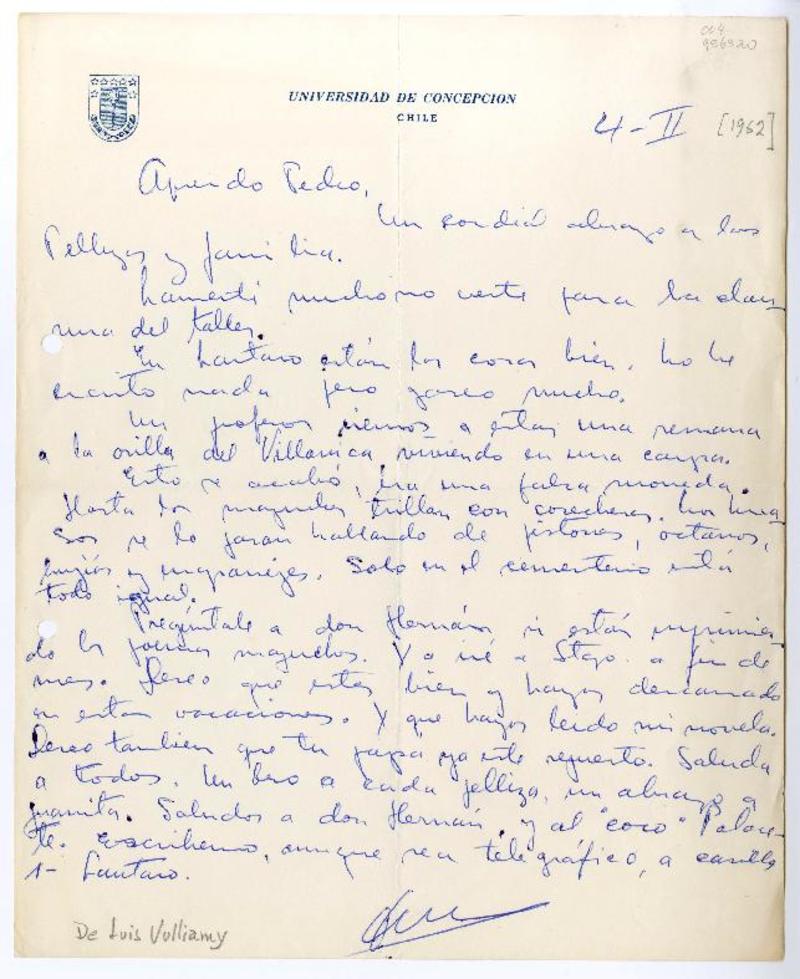 004
956920
UNIVERSIDAD DE CONCEPCION
CHILE
4-II [1962]
Querido Pedro,
Un cordial abrazo a las
Pellizas y familia.
Lamenté mucho no verte para la clau-
sura del taller.
En Lautaro están las cosas bien. No he
escrito nada pero gozo mucho.
Un profesor a estar una semana
a la orilla del Villarrica viviendo en una carpa.
Esto se acabó, era una falsa moneda.
Hasta los mapuches trillan con cosechera. Los hua-
sos se lo pasan hablando de pistones, octanos,
bujías y engranajes. Solo en el cementerio está
todo igual.
Pregúntale a don Hernán si están imprimien-
do los poemas mapuches. Yo iré a Stgo. a fin de
mes. Deseo que estés bien y hayas descansado
en estas vacaciones. Y que hayas leído mi novela.
Deseo tambien que tu papá ya esté repuesto. Saluda
a todos. Un beso a cada pelliza, un abrazo a
Juanita. Saludos a don Hernán y al "coco"
te. Escríbeme, aunque sea telegráfico, a casilla
1- Lautaro.
De Luis Vulliamy